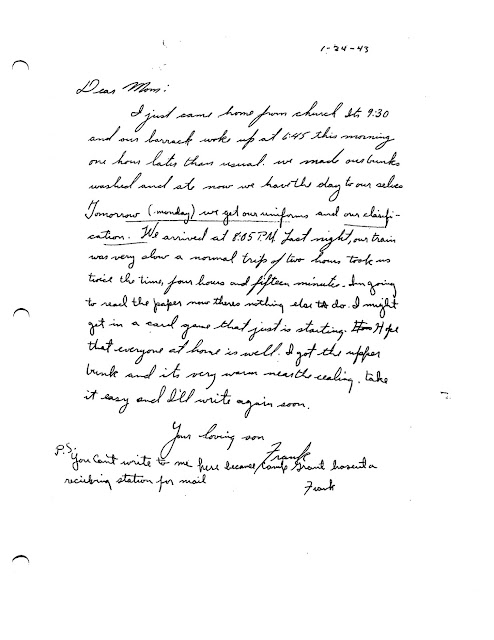 1-24-43
Dear Mom:
I just came home from church its 9:30
and our barrack woke up at 6:45 this morning
one hour later than usual. we made our bunks
washed and ate now we have the day to our selves
Tomorrow (monday) we get our uniforms and our classifi-
cation. We arrived at 8:05 P.M. last night, our train
was very slow a normal trip of two hours took us
twice the time, four hours and fifteen minutes. Im going
to read the paper now theres nothing else to do. I might
get in a card game that just is starting. Hope
that everyone at home is well. I got the upper
bunk and its very warm near the cealing. take
it easy and I'll write again soon.
Your loving son
Frank
P.S. You cant write to me here because Camp Grant hasent a
recieving station for mail
Frank